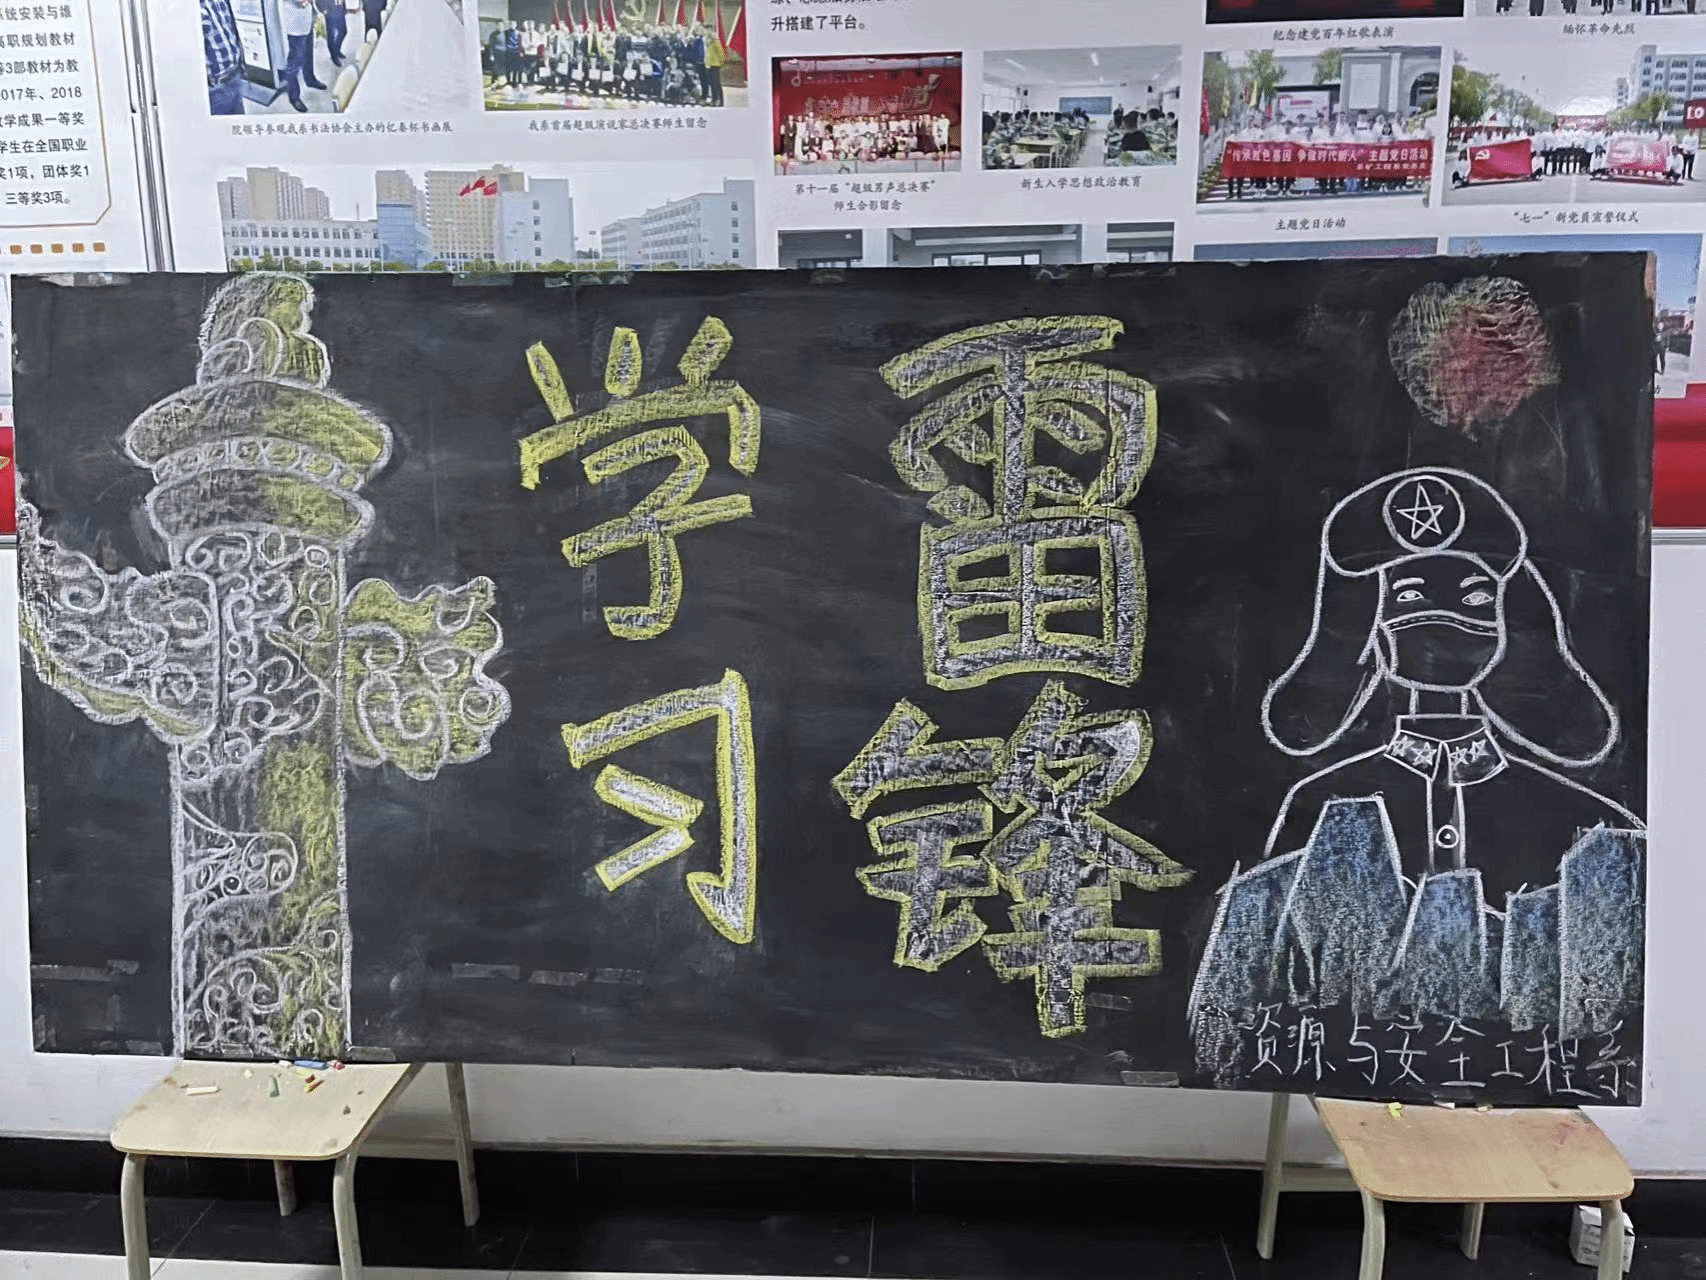 系统安装与维
高职规划教材
等3部教材为教
2017年、2018
教学成果一等奖
学生在全国职业
奖1项，团体奖1
三等奖3项。
升搭建了平台。
院领导参观我系书法协会主办的忆秦怀书画展
我系首届超级演说家总决赛师生留念
第十一届“超级男声总决赛”
师生合影留念
新生入学思想政治教育
纪念建党百年红歌表演
缅怀革命先烈
“传承红色基因 争做时代新人”主题党日活动
主题党日活动
“七一”新党员宣誓仪式
学习
雷锋
资源与安全工程系